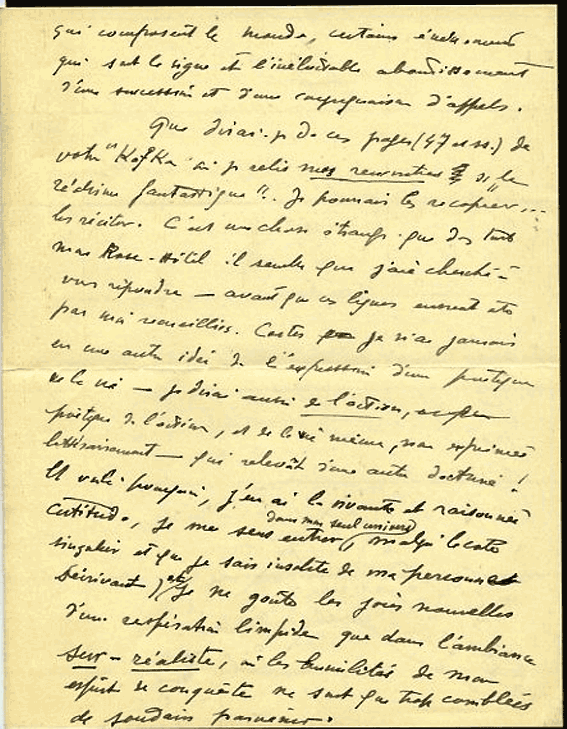 qui composent le monde, certains événements
qui sont le signe et l'inéluctable aboutissement
d'une succession et d'une conjugaison d'appels.
Que dirai-je de ces pages (47 et ss.) de
votre "Kafka" où je relis nos rencontres si "le
réalisme fantastique". Je pourrais les recopier...
les réciter. C'est une chose étrange que dès tout
mon Rose-Hôtel il semble que j'aie cherché à
vous répondre — avant que ces lignes eussent été
par moi recueillies. Certes je n'ai jamais
eu une autre idée de l'expression d'une poétique
de la vie — je dirai aussi de l'action,
poétique de l'action, et de la vie même, non exprimée
littérairement — qui relevât d'une autre doctrine !
Et voilà pourquoi, j'en ai la vivante et raisonnée
certitude, je me sens entrer dans mon seul univers, malgré le côté
singulier et que je sais insolite de ma personne
écrivant, et je ne goûte les joies nouvelles
d'une respiration limpide que dans l'ambiance
sur-réaliste, où les humilités de mon
esprit de conquête ne sont que trop comblées
de soudain parvenir.